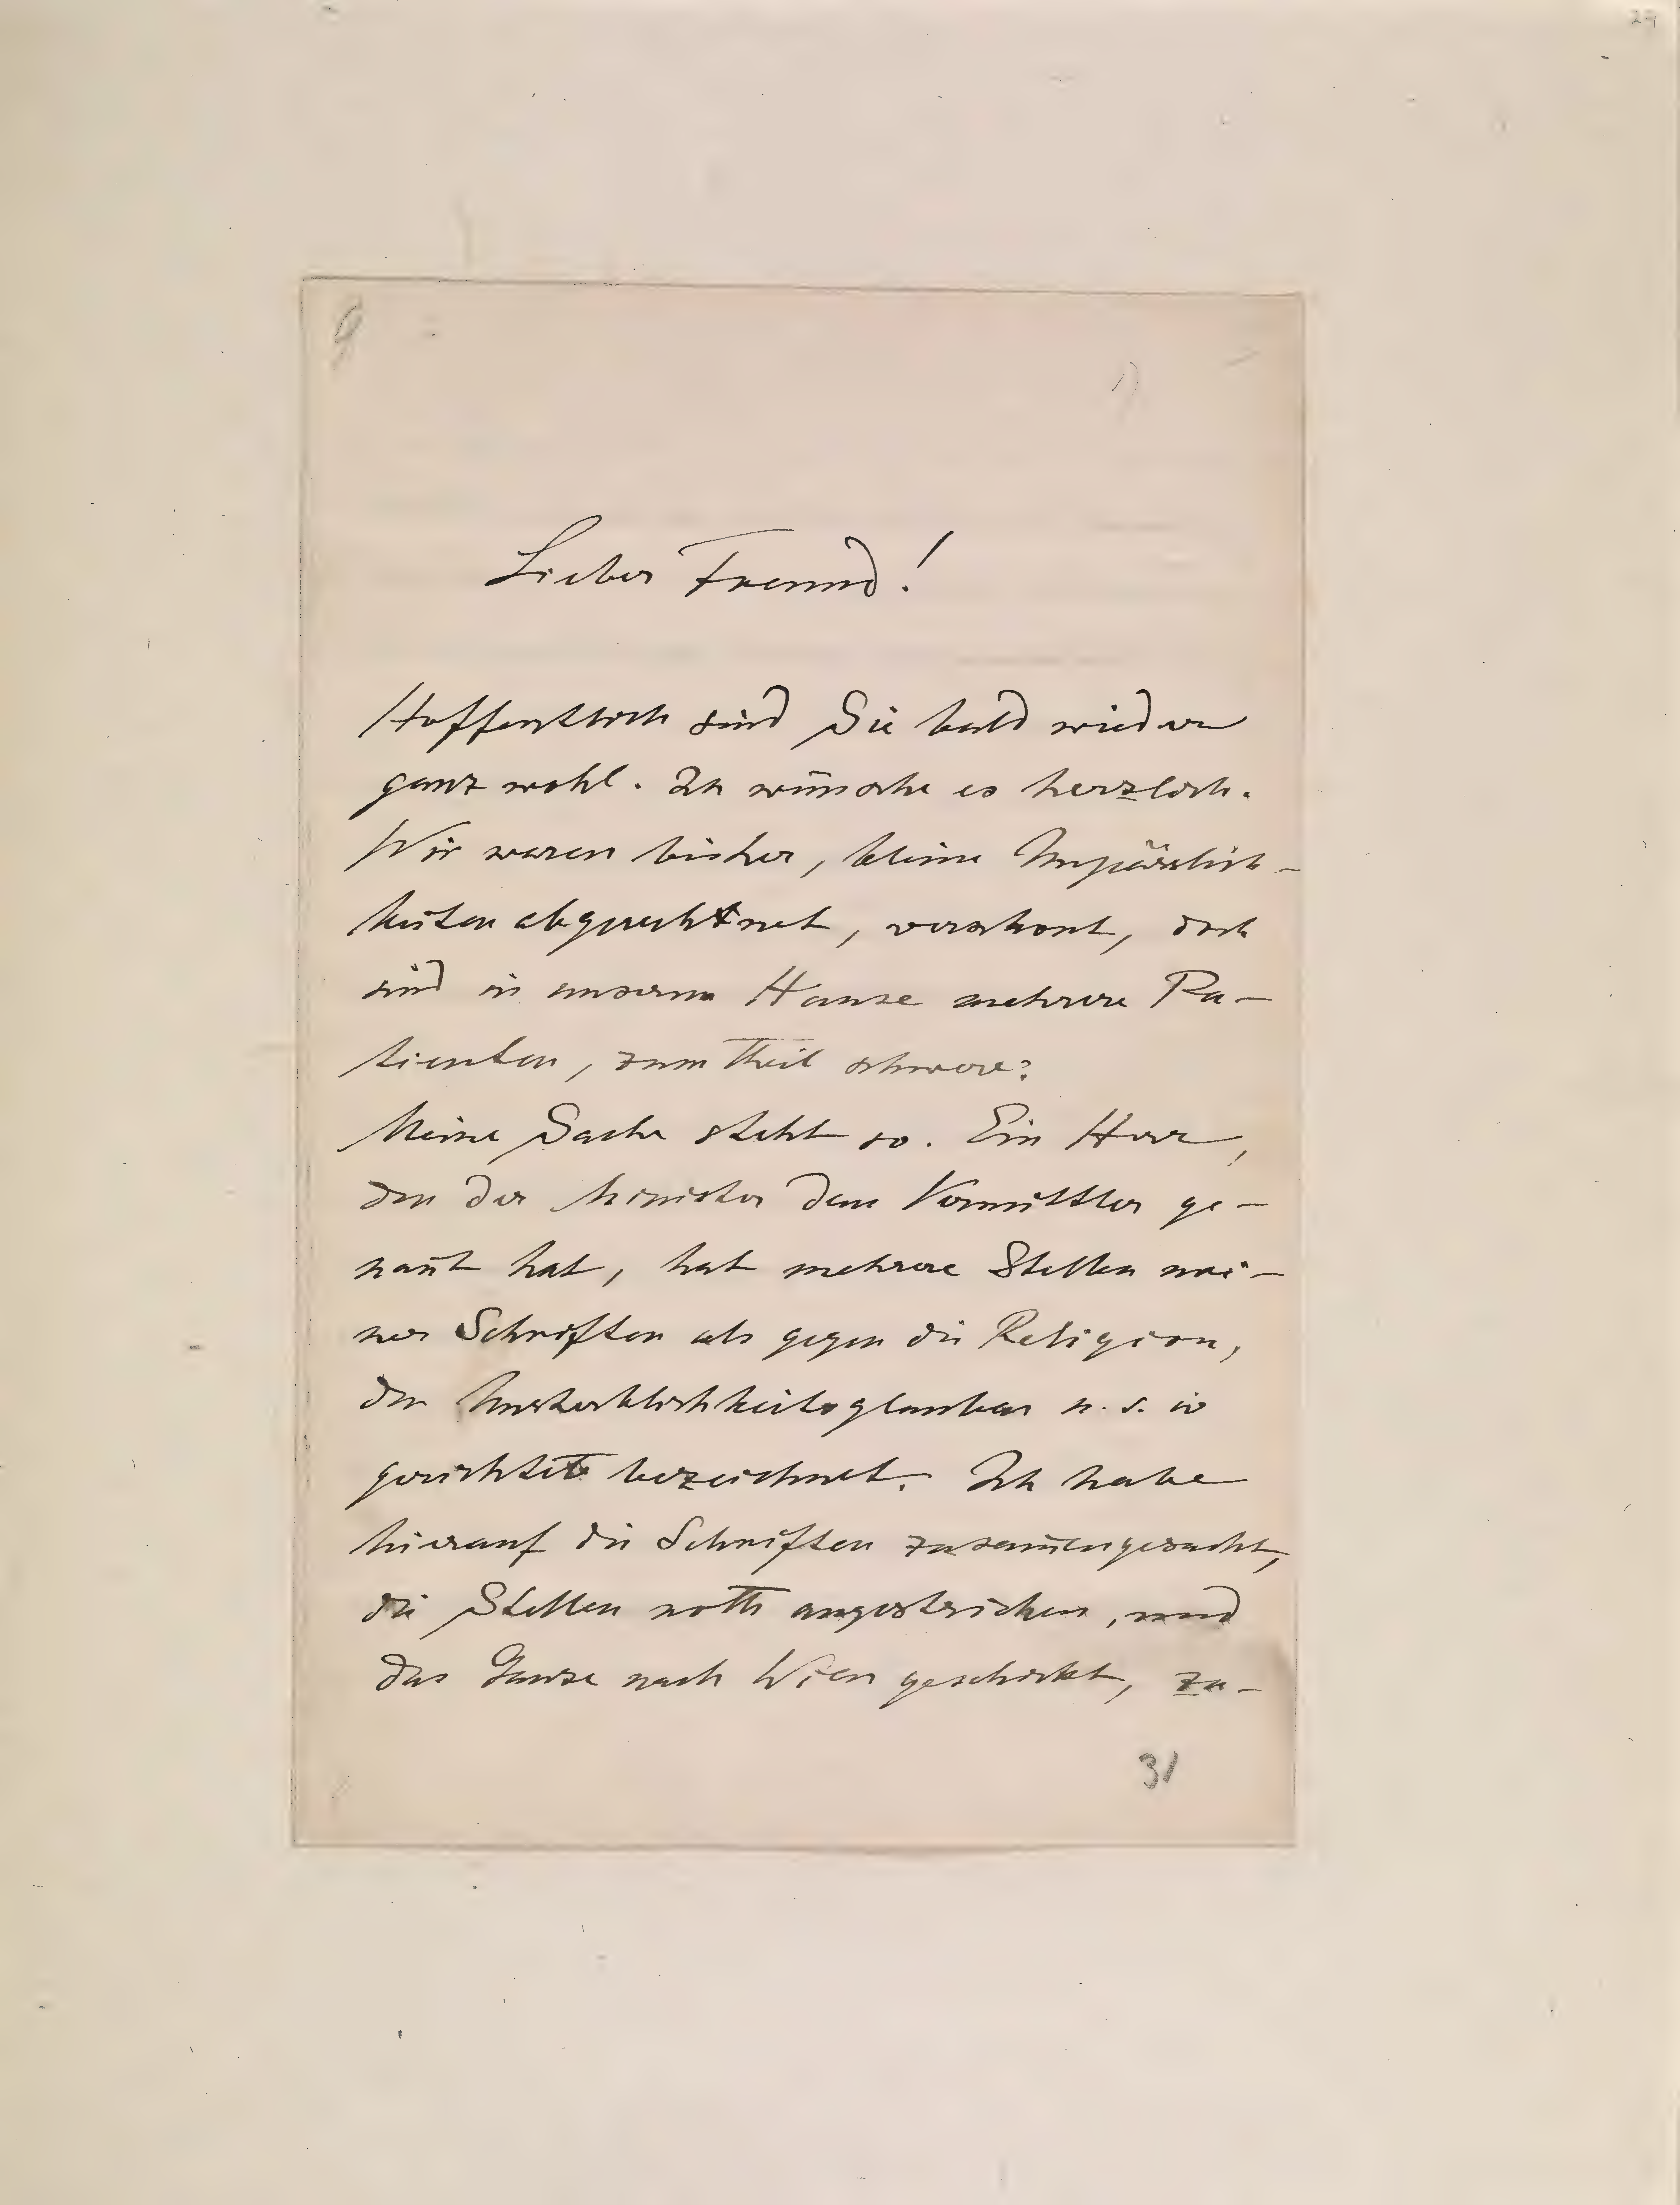 Lieber Freund!
Hoffentlich sind Sie bald wieder
ganz wohl. Ich wünsche es herzlich.
Wir waren bisher, kleine Unpässlich-
keiten abgerechnet, verschont, doch
sind in unserem Hause mehrere Pa-
tienten, zum Theil schwere.
Meine Sache steht so. Ein Herr,
den der Minister dem Vermittler ge-
nan̄t hat, hat mehrere Stellen mei-
ner Schriften als gegen die Religion,
den Unsterblichkeitsglauben u. s. w
gerichtet bezeichnet. Ich habe
hierauf die Schriften zusam̄engesucht,
die Stellen roth angestrichen, und
das Ganze nach Wien geschickt, zu-
31